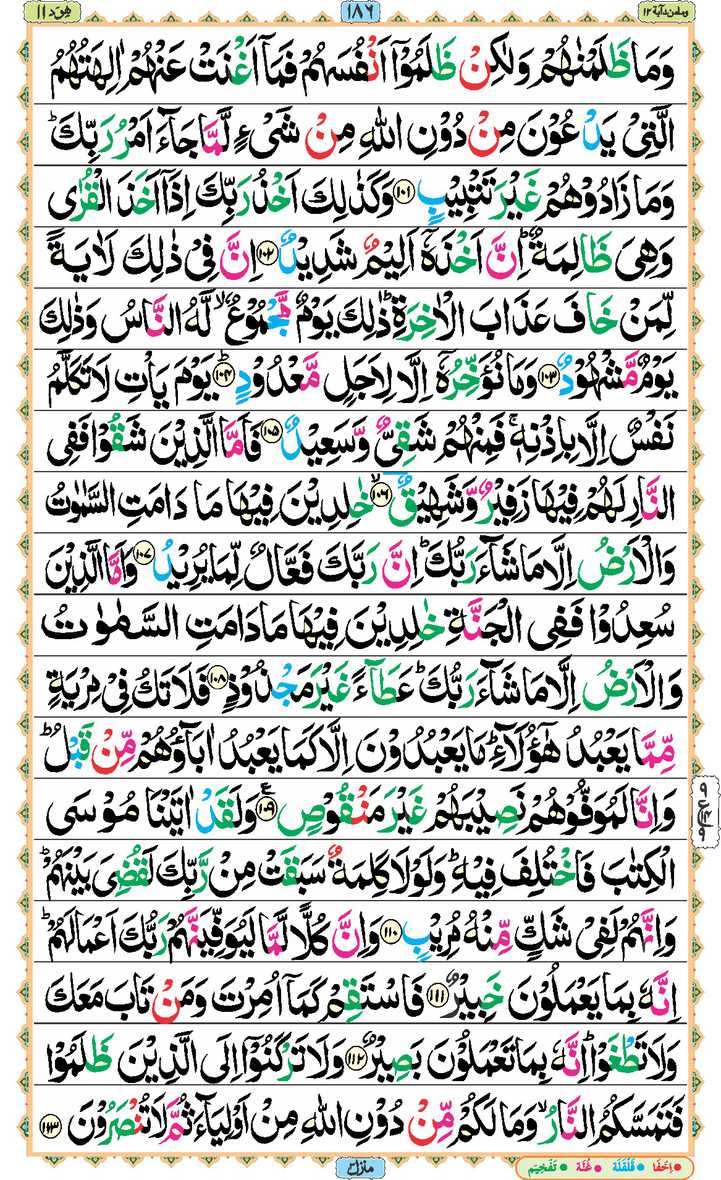 ومامن دآبة ١٢
١٨٦
هود ١١
وَمَا ظَلَمْنٰهُمْ وَلٰكِنْ ظَلَمُوْٓا اَنْفُسَهُمْ فَمَآ اَغْنَتْ عَنْهُمْ اٰلِهَتُهُمُ
الَّتِیْ یَدْعُوْنَ مِنْ دُوْنِ اللّٰهِ مِنْ شَیْءٍ لَّمَّا جَآءَ اَمْرُ رَبِّكَ ؕ
وَمَا زَادُوْهُمْ غَیْرَ تَتْبِیْبٍ ﴿۱۰۱﴾ وَكَذٰلِكَ اَخْذُ رَبِّكَ اِذَآ اَخَذَ الْقُرٰی
وَهِیَ ظَالِمَةٌ ؕ اِنَّ اَخْذَهٗٓ اَلِیْمٌ شَدِیْدٌ ﴿۱۰۲﴾ اِنَّ فِیْ ذٰلِكَ لَاٰیَةً
لِّمَنْ خَافَ عَذَابَ الْاٰخِرَةِ ؕ ذٰلِكَ یَوْمٌ مَّجْمُوْعٌ ۙ لَّهُ النَّاسُ وَذٰلِكَ
یَوْمٌ مَّشْهُوْدٌ ﴿۱۰۳﴾ وَمَا نُؤَخِّرُهٗٓ اِلَّا لِاَجَلٍ مَّعْدُوْدٍ ﴿۱۰۴﴾ ؕ یَوْمَ یَاْتِ لَا تَكَلَّمُ
نَفْسٌ اِلَّا بِاِذْنِهٖ ۚ فَمِنْهُمْ شَقِیٌّ وَّسَعِیْدٌ ﴿۱۰۵﴾ فَاَمَّا الَّذِیْنَ شَقُوْا فَفِی
النَّارِ لَهُمْ فِیْهَا زَفِیْرٌ وَّشَهِیْقٌ ﴿۱۰۶﴾ ۙ خٰلِدِیْنَ فِیْهَا مَا دَامَتِ السَّمٰوٰتُ
وَالْاَرْضُ اِلَّا مَا شَآءَ رَبُّكَ ؕ اِنَّ رَبَّكَ فَعَّالٌ لِّمَا یُرِیْدُ ﴿۱۰۷﴾ وَاَمَّا الَّذِیْنَ
سُعِدُوْا فَفِی الْجَنَّةِ خٰلِدِیْنَ فِیْهَا مَا دَامَتِ السَّمٰوٰتُ
وَالْاَرْضُ اِلَّا مَا شَآءَ رَبُّكَ ؕ عَطَآءً غَیْرَ مَجْذُوْذٍ ﴿۱۰۸﴾ فَلَا تَكُ فِیْ مِرْیَةٍ
مِّمَّا یَعْبُدُ هٰٓؤُلَآءِ ؕ مَا یَعْبُدُوْنَ اِلَّا كَمَا یَعْبُدُ اٰبَآؤُهُمْ مِّنْ قَبْلُ ؕ
وَاِنَّا لَمُوَفُّوْهُمْ نَصِیْبَهُمْ غَیْرَ مَنْقُوْصٍ ﴿۱۰۹﴾ ع وَلَقَدْ اٰتَیْنَا مُوْسَی
الْكِتٰبَ فَاخْتُلِفَ فِیْهِ ؕ وَلَوْلَا كَلِمَةٌ سَبَقَتْ مِنْ رَّبِّكَ لَقُضِیَ بَیْنَهُمْ ؕ
وَاِنَّهُمْ لَفِیْ شَكٍّ مِّنْهُ مُرِیْبٍ ﴿۱۱۰﴾ وَاِنَّ كُلًّا لَّمَّا لَیُوَفِّیَنَّهُمْ رَبُّكَ اَعْمَالَهُمْ ؕ
اِنَّهٗ بِمَا یَعْمَلُوْنَ خَبِیْرٌ ﴿۱۱۱﴾ فَاسْتَقِمْ كَمَآ اُمِرْتَ وَمَنْ تَابَ مَعَكَ
وَلَا تَطْغَوْا ؕ اِنَّهٗ بِمَا تَعْمَلُوْنَ بَصِیْرٌ ﴿۱۱۲﴾ وَلَا تَرْكَنُوْٓا اِلَی الَّذِیْنَ ظَلَمُوْا
فَتَمَسَّكُمُ النَّارُ ۙ وَمَا لَكُمْ مِّنْ دُوْنِ اللّٰهِ مِنْ اَوْلِیَآءَ ثُمَّ لَا تُنْصَرُوْنَ ﴿۱۱۳﴾
منزل ٣
اِخفَا • قَلْقَلَه • غُنَّه • تَفْخِيم